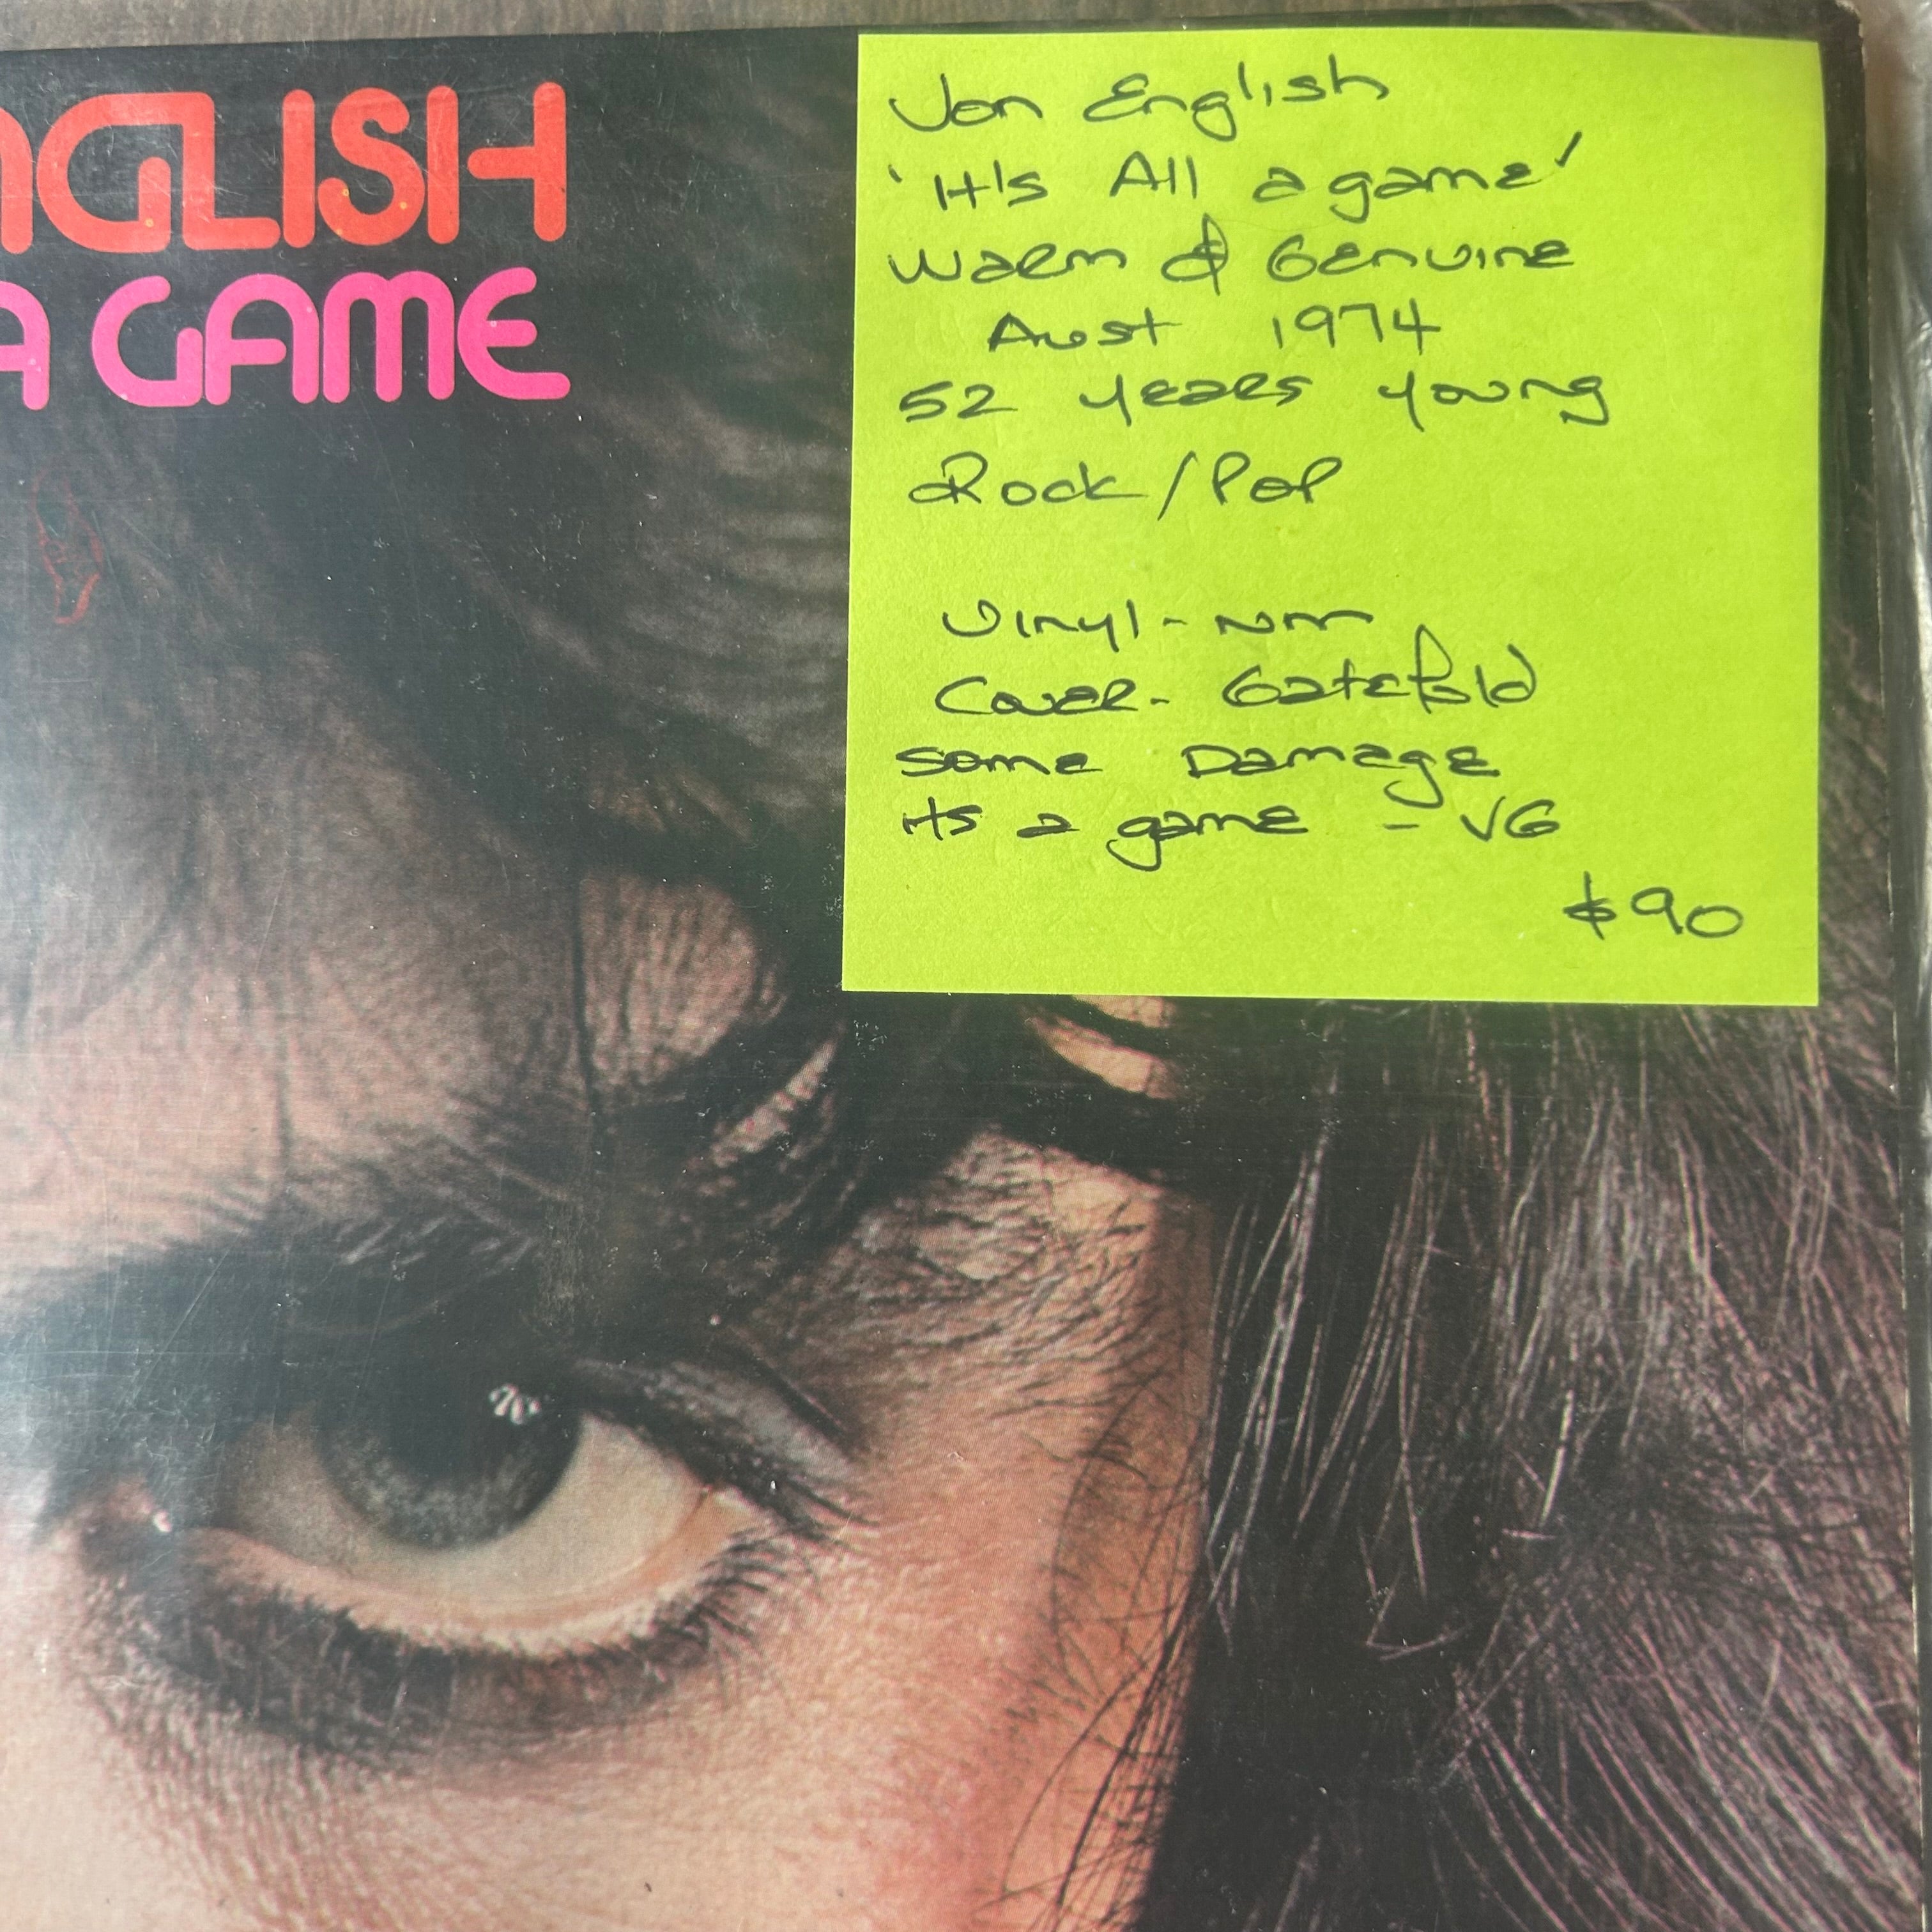 NGLISH
A GAME
Jon English
'It's All a game'
Warm & Genuine
Aust 1974
52 years young
Rock/Pop
Vinyl - NM
Cover - Gatefold
Some Damage
its a game - VG
$90